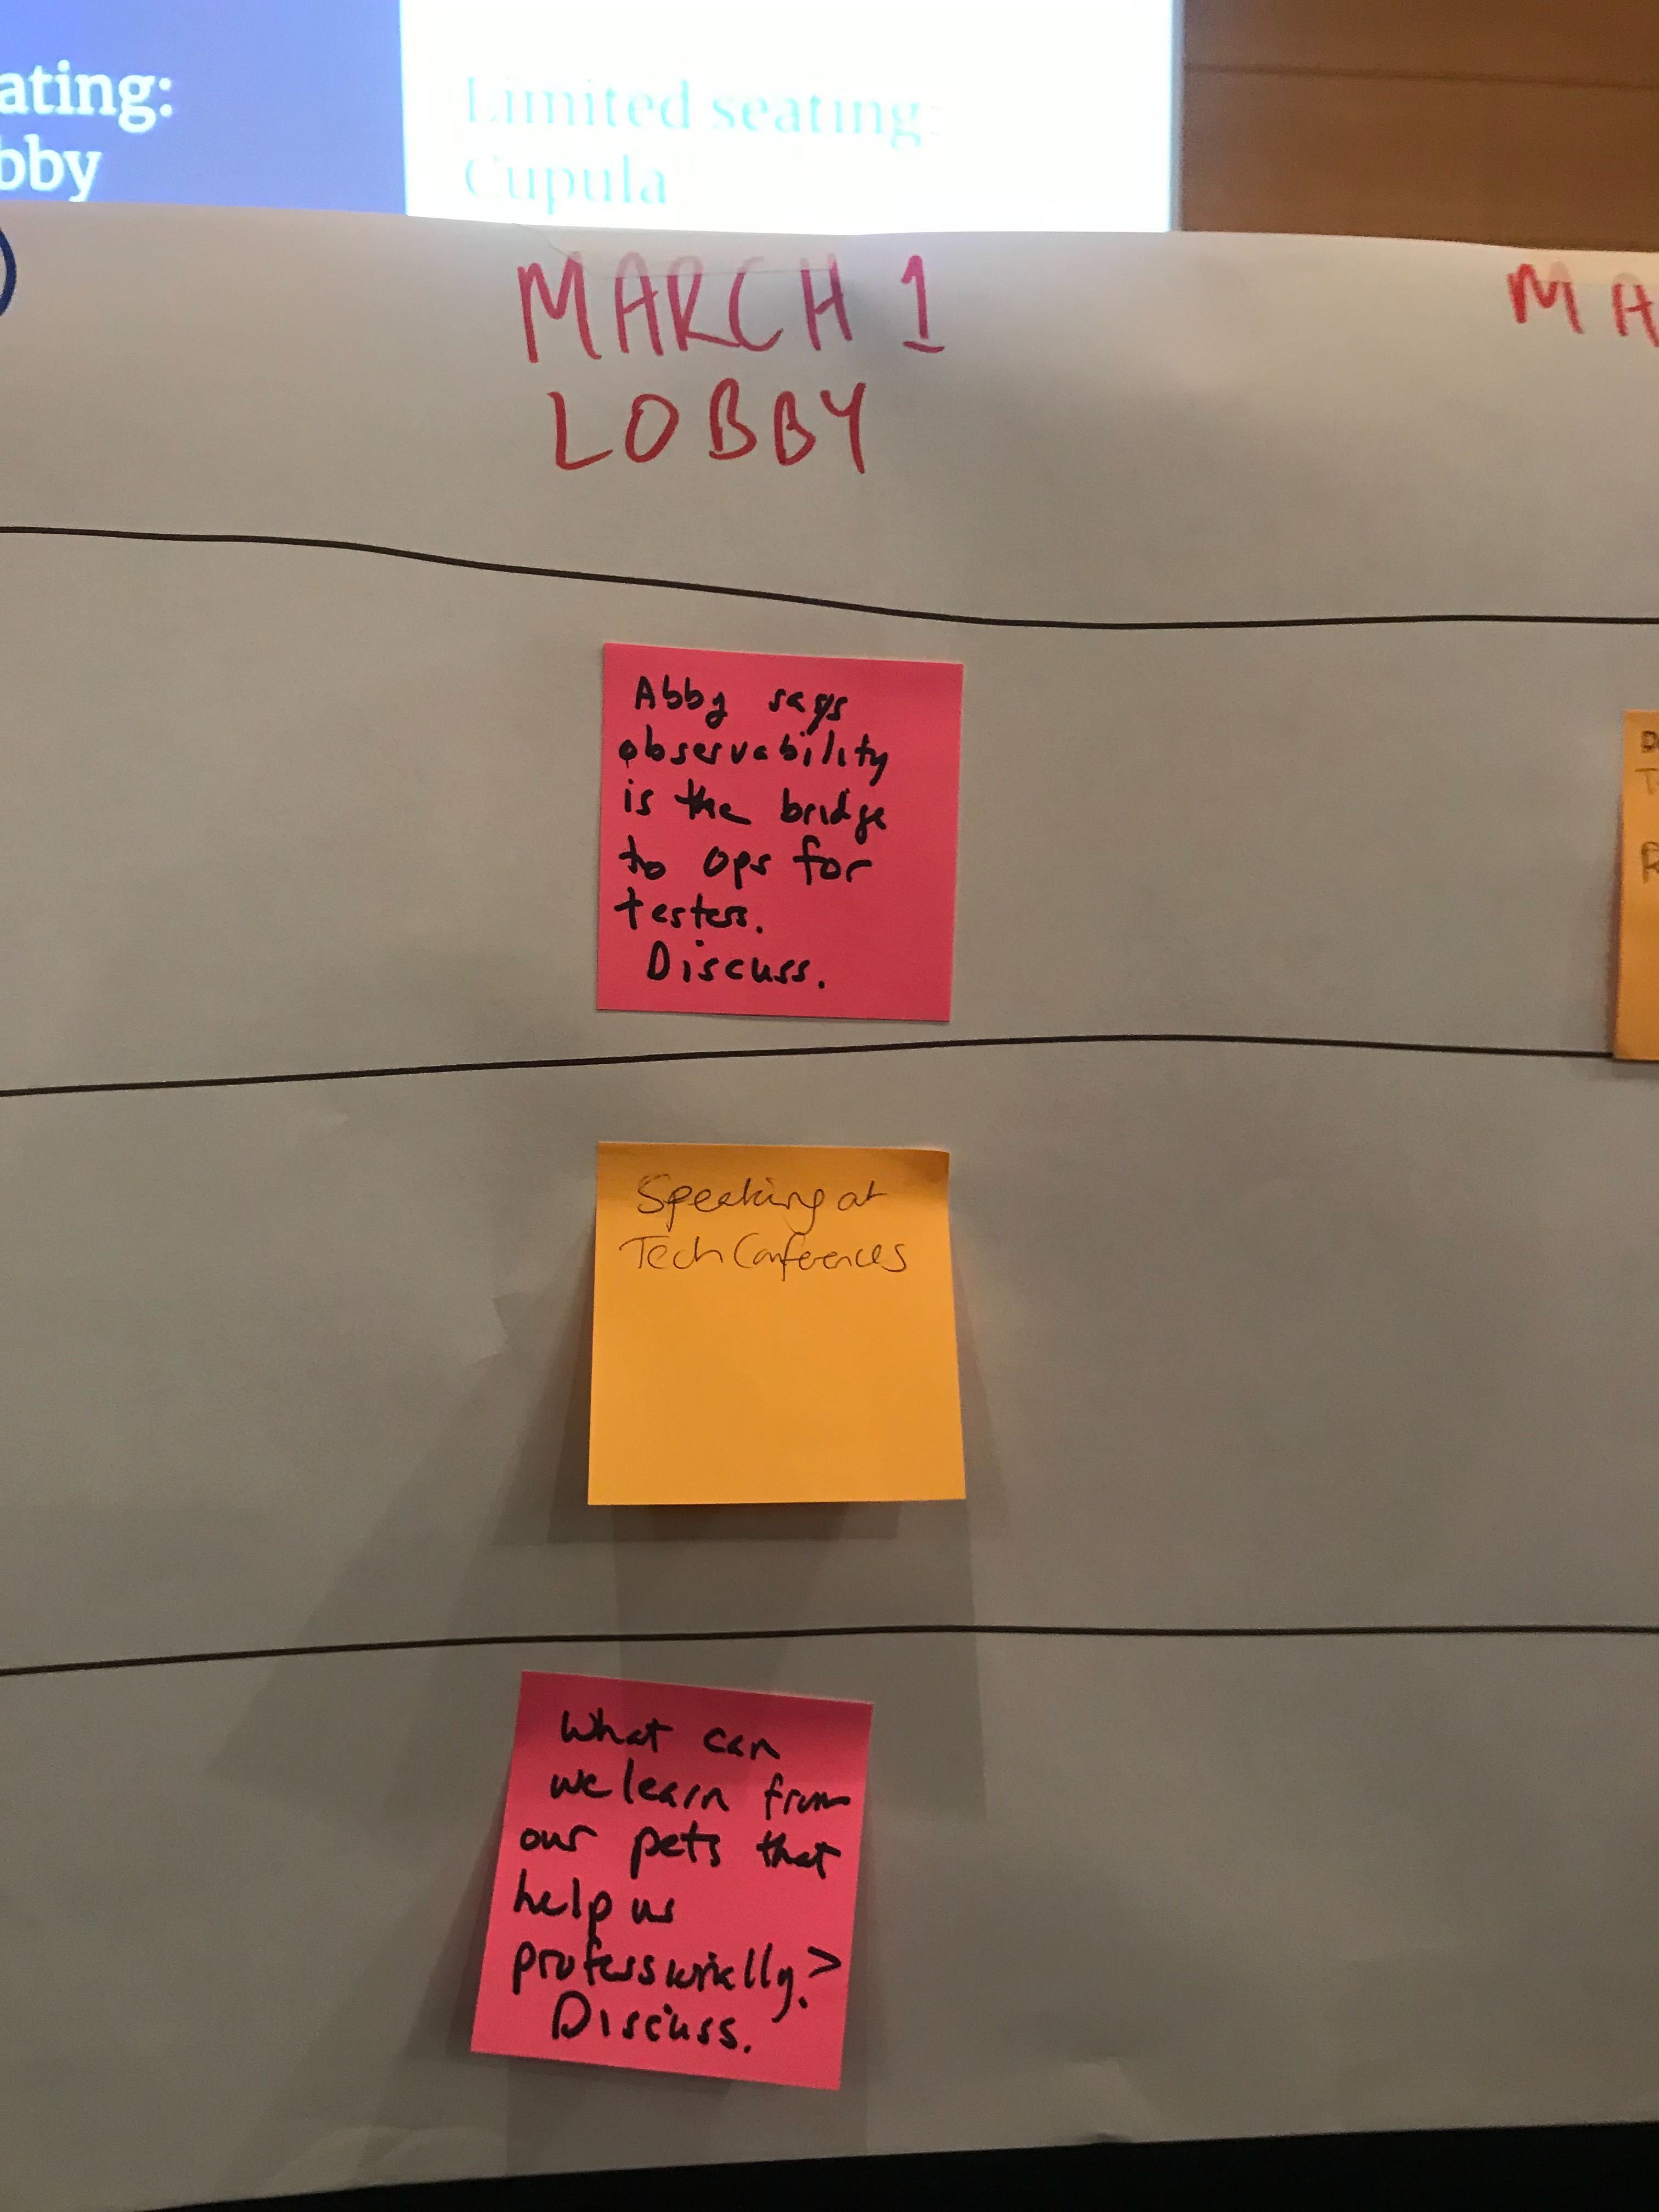 ating:
bby
Limited seating:
Cupula
MARCH 1
LOBBY
MA
Abby says
observability
is the bridge
to ops for
testers.
Discuss.
Speaking at
Tech Conferences
What can
we learn from
our pets that
help us
professionally?
Discuss.